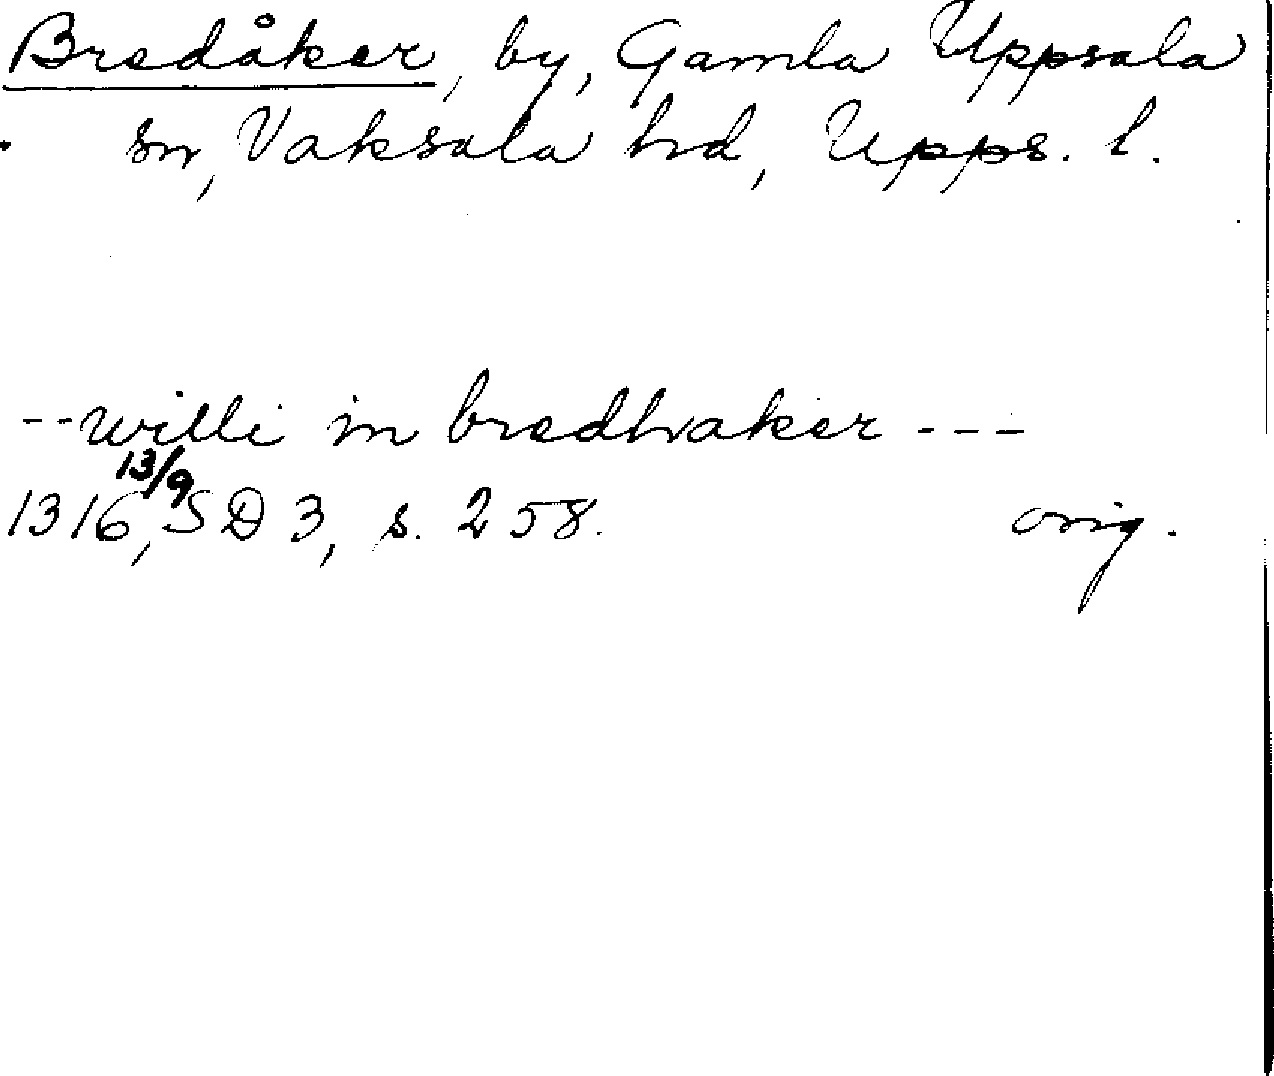 Bredåker, by, Gamla Uppsala
sn, Vaksala hd, Upps. l.
--willi in bredhaker ---
13/9
1316, SD 3, s. 258. orig.